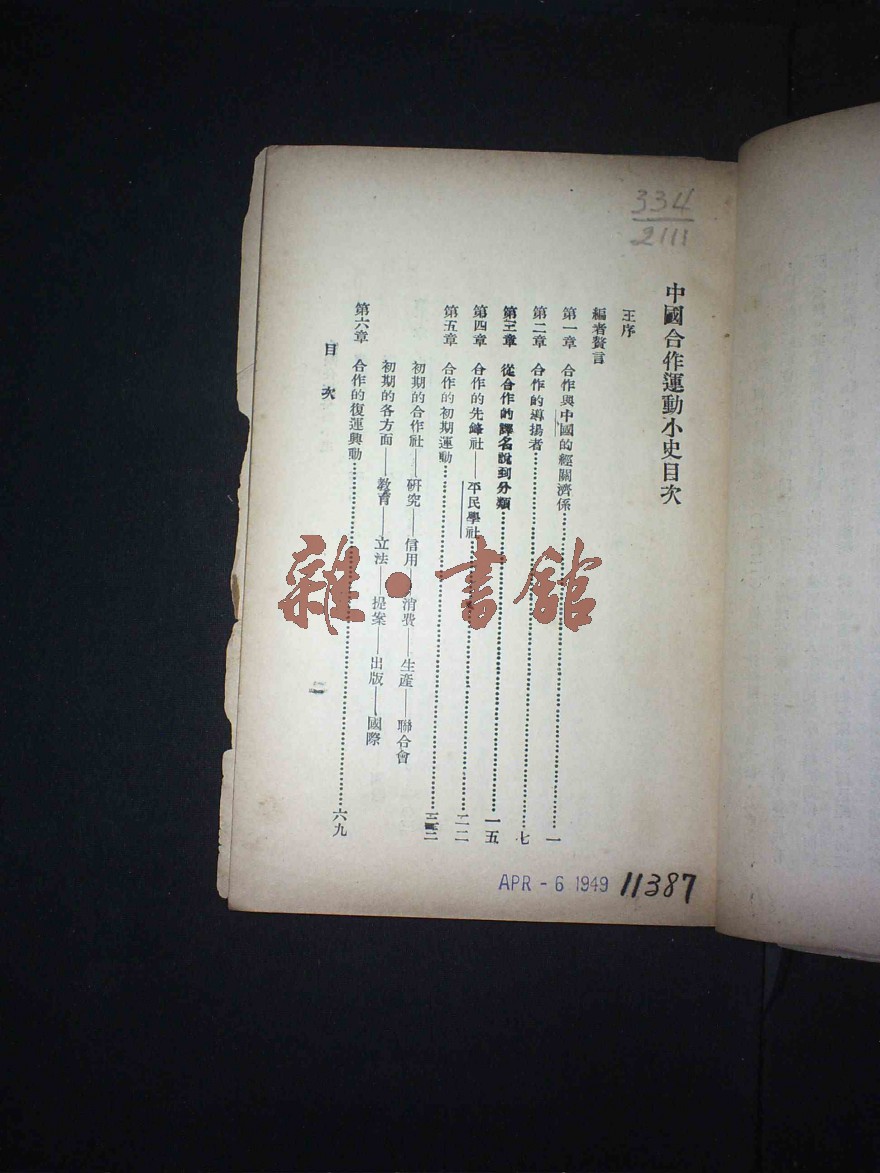 334
2111
中國合作運動小史目次
王序
編者贅言
第一章 合作與中國的經關濟係……一
第二章 合作的導揚者……七
第三章 從合作的譯名說到分類……一五
第四章 合作的先鋒社——平民學社……二二
第五章 合作的初期運動……三二
初期的合作社——研究——信用——消費——生產——聯合會
初期的各方面——教育——立法——提案——出版——國際
第六章 合作的復運興動……六九
目次
雜·書館
APR - 6 1949
11387